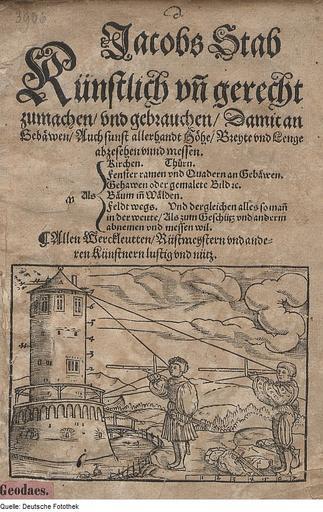 3906
Jacobs Stab
Künstlich vñ gerecht
zumachen/ vnd gebrauchen/ Damit an
Gebäwen/ Auch sunst allerhandt Höhe/ Breyte vnd Lenge
abzesehen vnnd messen.
Kirchen. Thürn.
Fenster ramen vnd Quadern an Gebäwen.
Gehawen oder gemalete Bild ꝛc.
Als Bäum iñ Wälden.
Feldt wegs. Vnd dergleichen alles so mañ
in der weute/ Als zum Geschütz vnd anderm
abnemen vnd messen wil.
Allen Werckleutten/ Rüstmeystern vnd ande-
ren Künstnern lustig vnd nütz.
5
4
3
2
1
Geodaes.
Quelle: Deutsche Fotothek